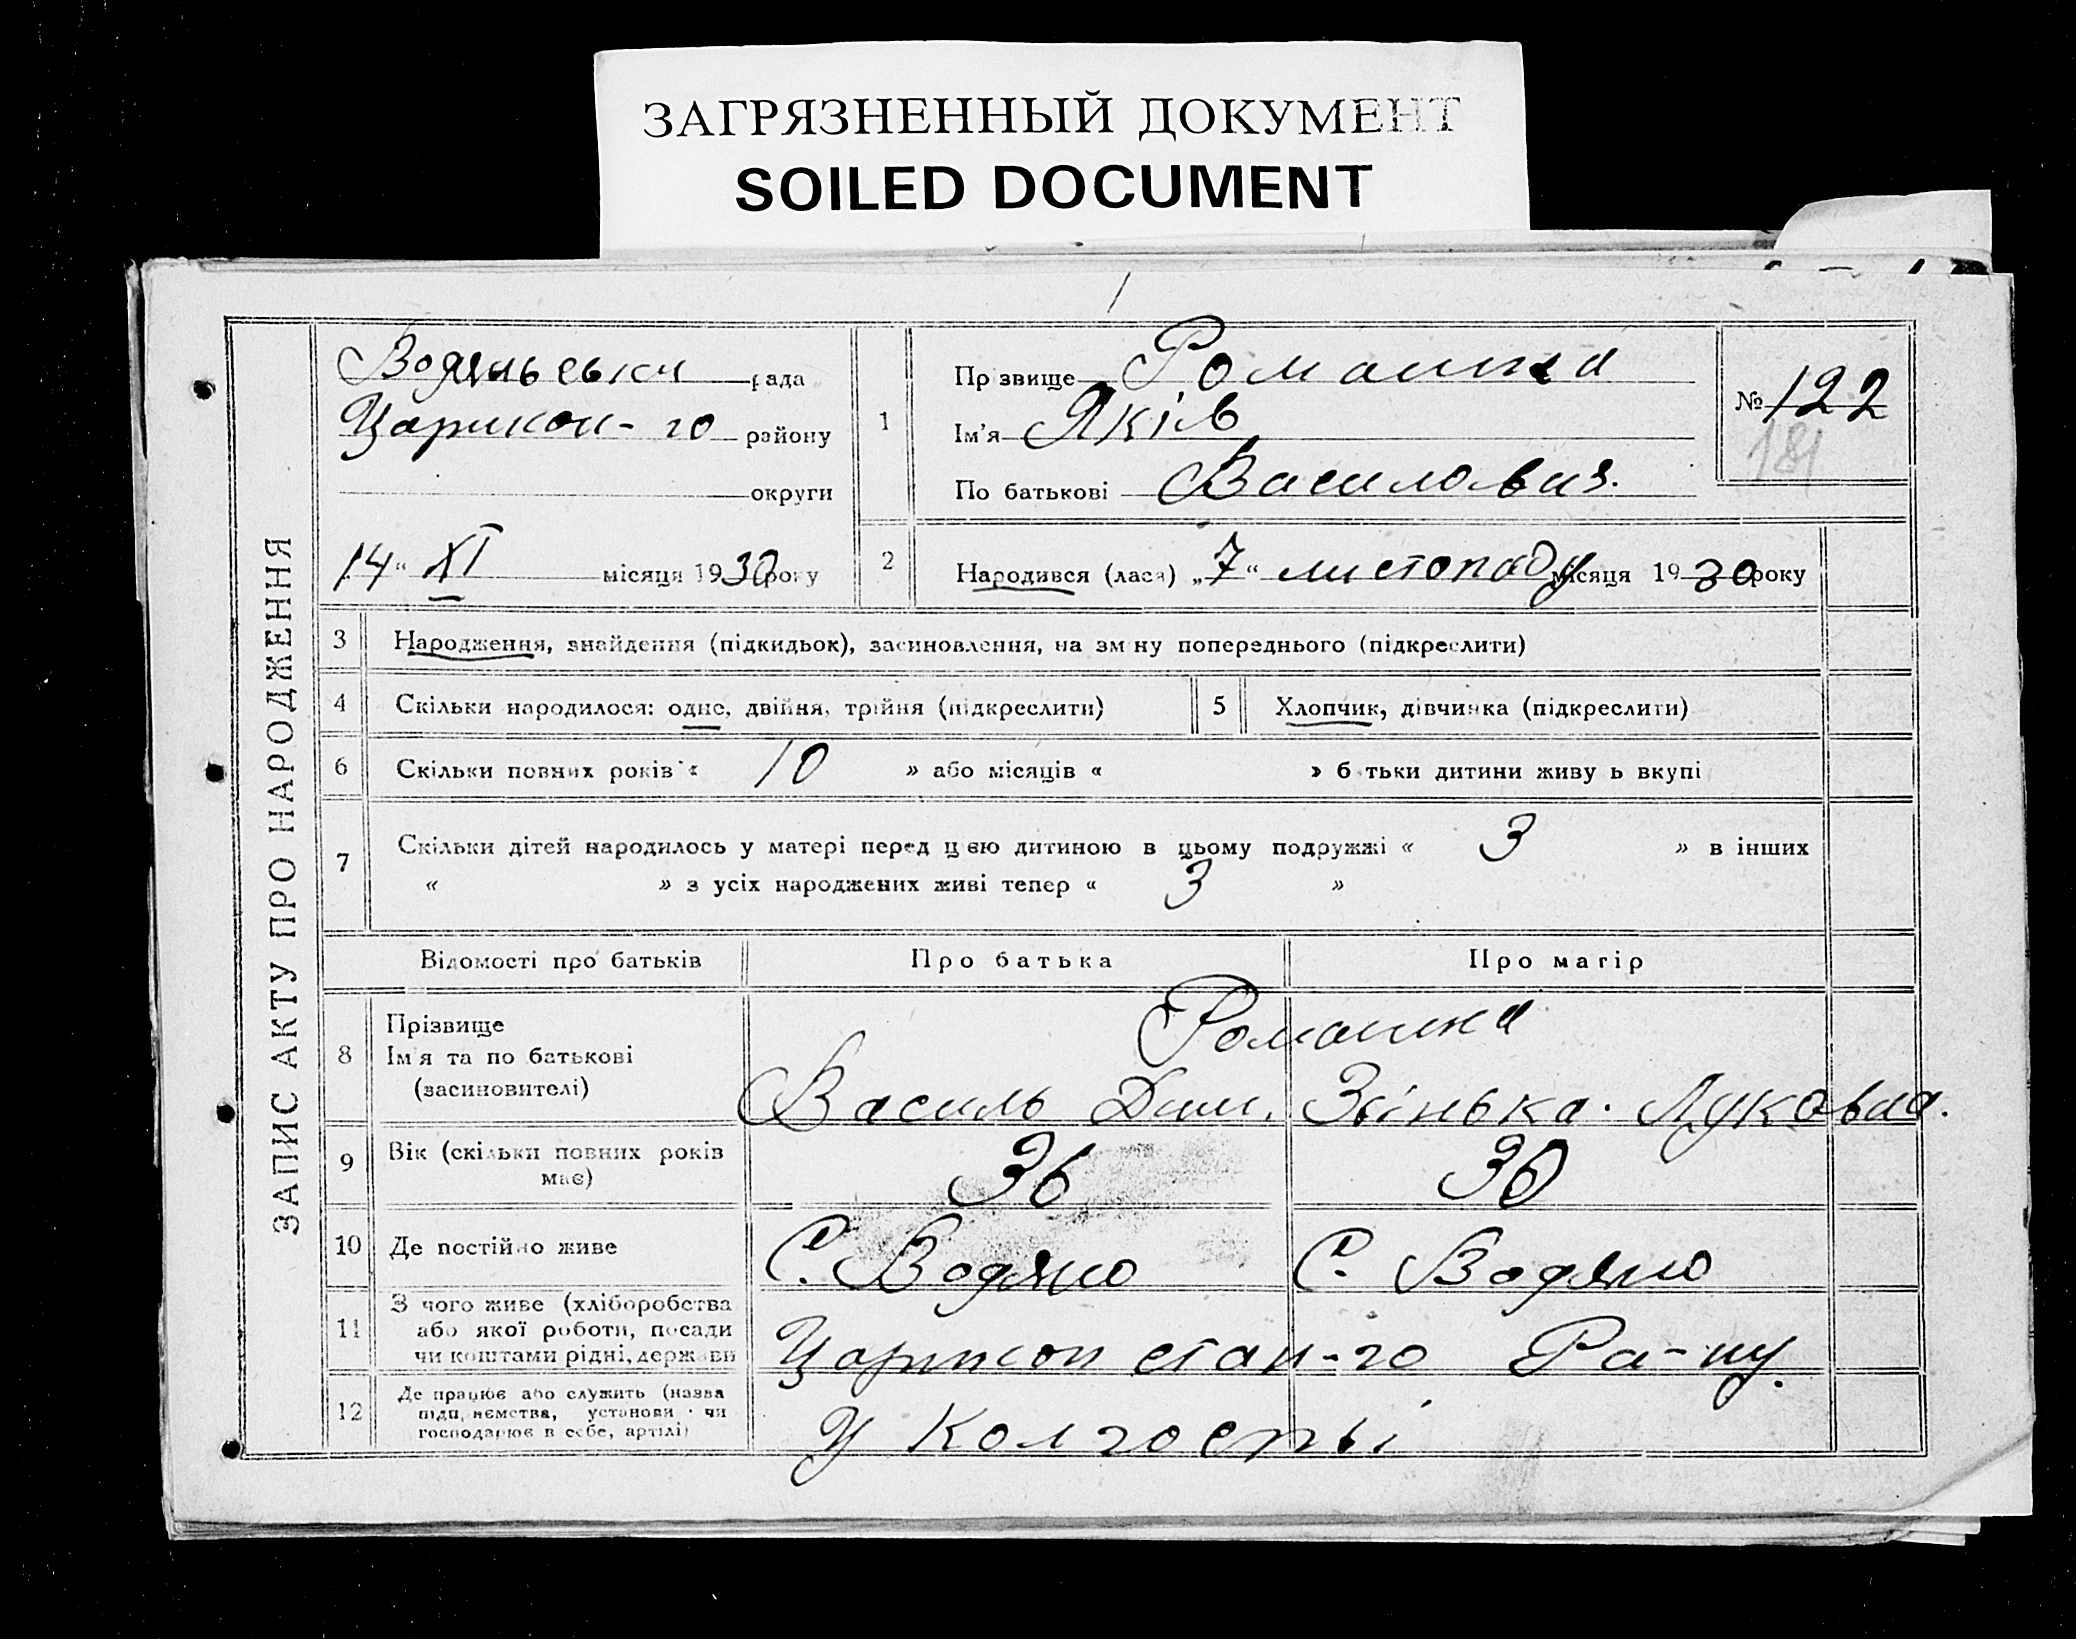 ЗАГРЯЗНЕННЫЙ ДОКУМЕНТ
SOILED DOCUMENT
ЗАПИС АКТУ ПРО НАРОДЖЕННЯ
Водянська рада
Царичан-го району
округи
14 " XI місяця 1930 року
1
Прізвище Романча
Ім'я Яків
По батькові Василович.
№ 122
181
2 Народився (лася) „ 7 “ листопаду місяця 1930 року
3 Народження, знайдення (підкидьок), засиновлення, на зміну попереднього (підкреслити)
4 Скільки народилося: одне, двійня, трійня (підкреслити) 5 Хлопчик, дівчинка (підкреслити)
6 Скільки повних років « 10 » або місяців « » батьки дитини живуть вкупі
7 Скільки дітей народилось у матері перед цією дитиною в цьому подружжі « 3 » в інших
« » з усіх народжених живі тепер « 3 »
Відомості про батьків Про батька Про матір
8 Прізвище
Ім'я та по батькові
(засиновителі)
Романча
Василь Дим. Зінька. Луковна.
9 Вік (скільки повних років
має)
36 30
10 Де постійно живе С. Водяно С. Водяно
11 З чого живе (хліборобства
або якої роботи, посади
чи коштами рідні, держави
Царичанстан-го Ра-ну.
12 Де працює або служить (назва
підприємства, установи чи
господарює в себе, артілі)
У колгоспі